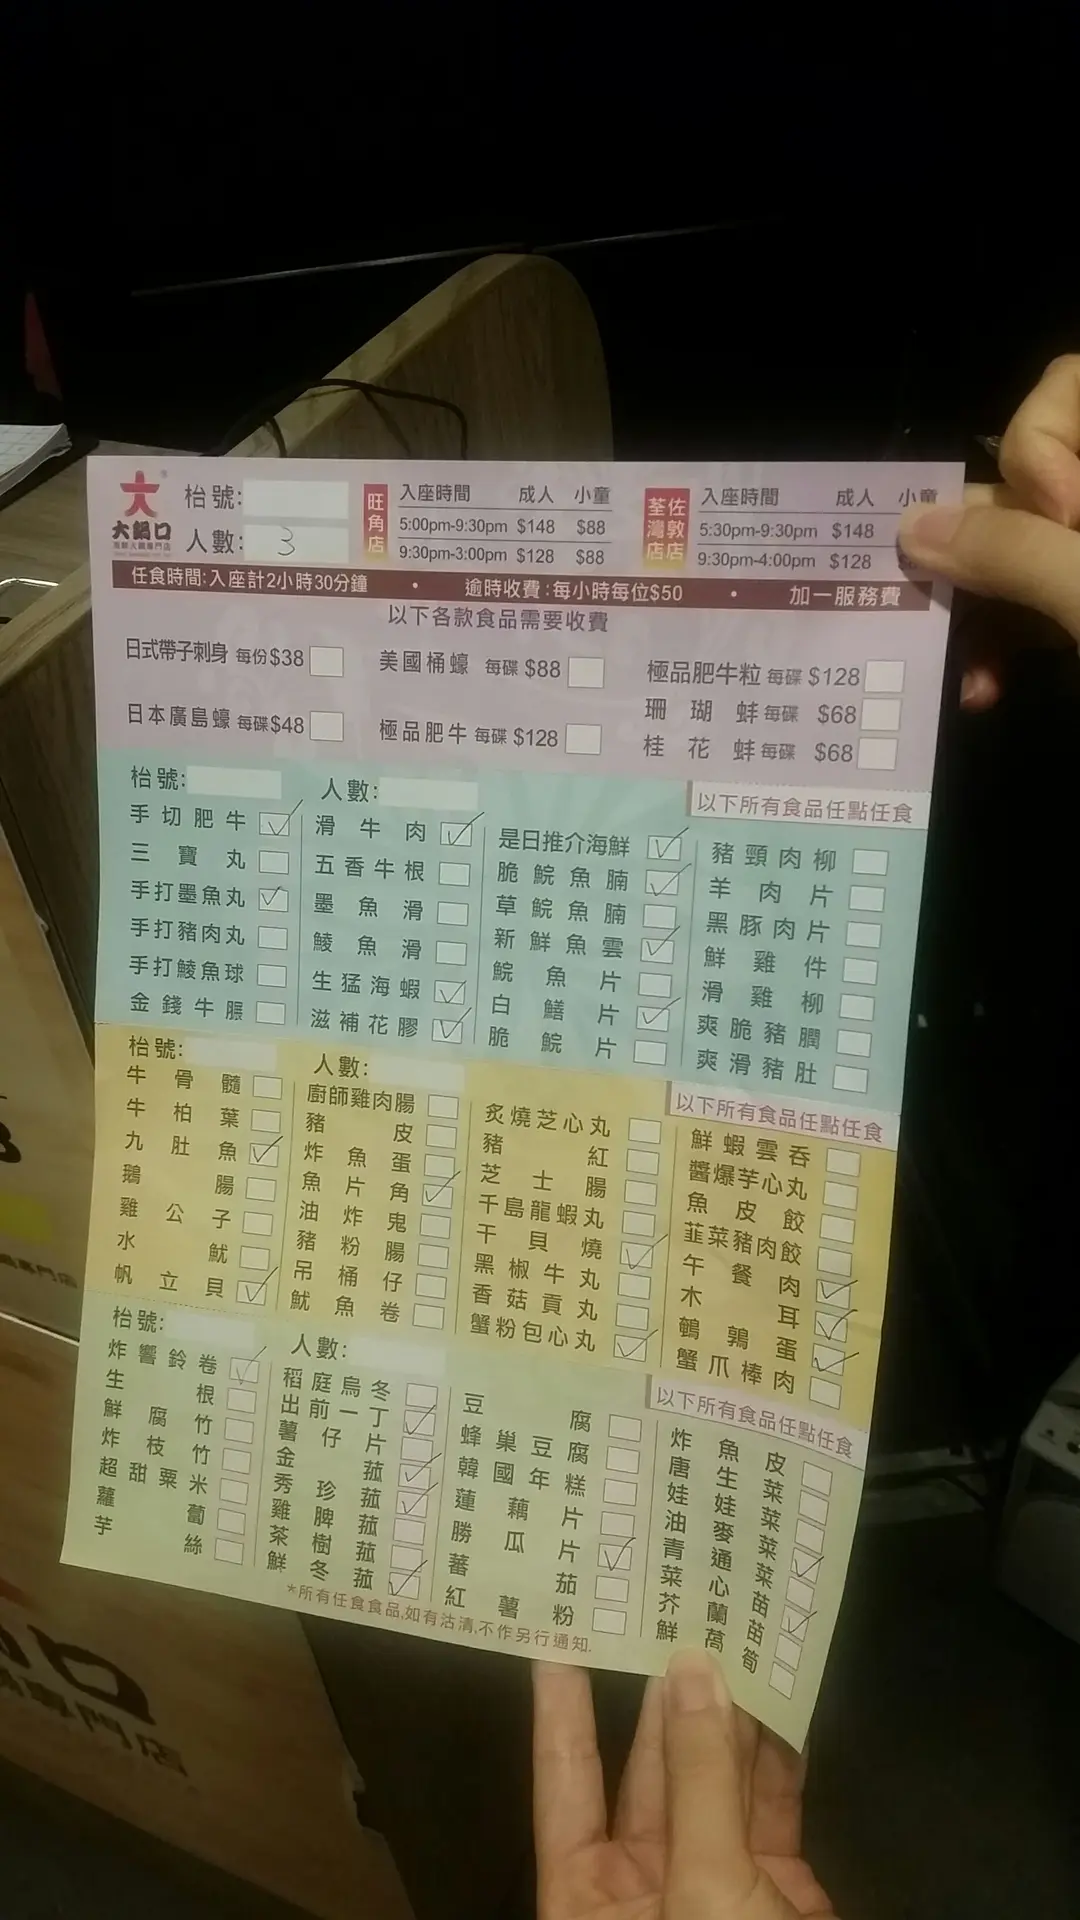 大鍋口
枱號:
人數: 3
旺角店
入座時間 成人 小童
5:00pm-9:30pm $148 $88
9:30pm-3:00pm $128 $88
荃灣店 佐敦店
入座時間 成人 小童
5:30pm-9:30pm $148
9:30pm-4:00pm $128
任食時間:入座計2小時30分鐘 • 逾時收費:每小時每位$50 • 加一服務費
以下各款食品需要收費
日式帶子刺身 每份$38
美國桶蠔 每碟 $88
極品肥牛粒 每碟 $128
珊瑚蚌 每碟 $68
日本廣島蠔 每碟$48
極品肥牛 每碟 $128
桂花蚌 每碟 $68
枱號:
人數:
以下所有食品任點任食
手切肥牛
三寶丸
手打墨魚丸
手打豬肉丸
手打鯪魚球
金錢牛脹
滑牛肉
五香牛根
墨魚滑
鯪魚滑
生猛海蝦
滋補花膠
是日推介海鮮
脆鯇魚腩
草鯇魚腩
新鮮魚雲
鯇魚片
白鱔片
脆鯇片
豬頸肉柳
羊肉片
黑豚肉片
鮮雞件
滑雞柳
爽脆豬膶
爽滑豬肚
枱號:
人數:
以下所有食品任點任食
牛骨髓
牛柏葉
九肚魚
鵝腸
雞公子
水魷
帆立貝
廚師雞肉腸
豬皮
炸魚蛋
魚片角
油炸鬼
豬粉腸
吊桶仔
魷魚卷
炙燒芝心丸
豬紅
芝士腸
千島龍蝦丸
干貝燒
黑椒牛丸
香菇貢丸
蟹粉包心丸
鮮蝦雲吞
醬爆芋心丸
魚皮餃
韮菜豬肉餃
午餐肉
木耳
鵪鶉蛋
蟹爪棒肉
枱號:
人數:
以下所有食品任點任食
炸響鈴卷
生根
鮮腐竹
炸枝竹
超甜粟米
蘿蔔
芋絲
稻庭烏冬
出前一丁
薯仔片
金菇
秀珍菇
雞脾菇
茶樹菇
鮮冬菇
豆腐
蜂巢豆腐
韓國年糕
蓮藕片
勝瓜片
蕃茄
紅薯粉
炸魚皮
唐生菜
娃娃菜
油麥菜
青通菜
菜心苗
芥蘭苗
鮮萵筍
*所有任食食品,如有沽清,不作另行通知.